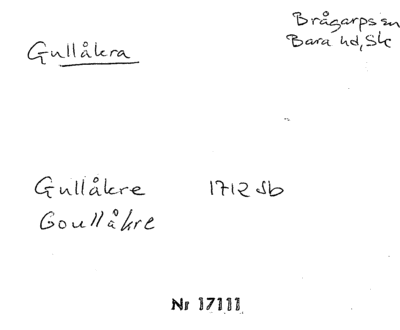 Gullåkra
Brågarps sn
Bara hd, Sk
Gullåkre 1712 Jb
Goullåkre
Nr 17111